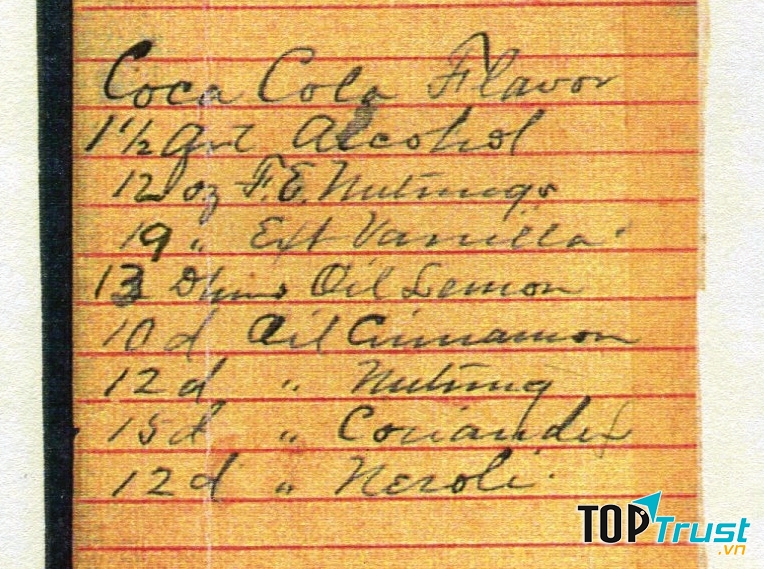 Coca Cola Flavor
1 1/2 Alcohol
12 oz F.E. Nutmegs
19 " Ext Vanilla
13 Oil Lemon
10 d Oil Cinnamon
12 d " Nutmeg
15 d " Coriander
12 d " Neroli.
TOPTrust
.vn